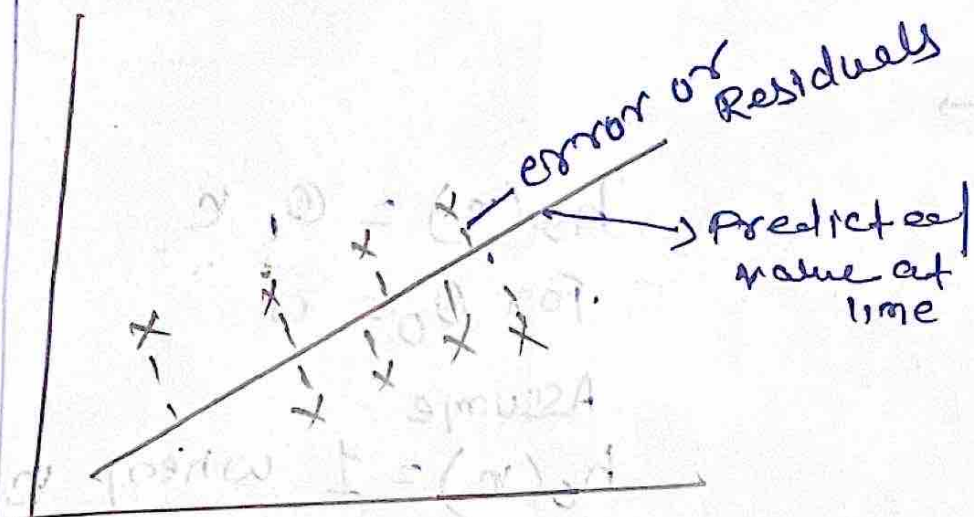 error or
Residuals
Predicted
value at
line
Assume